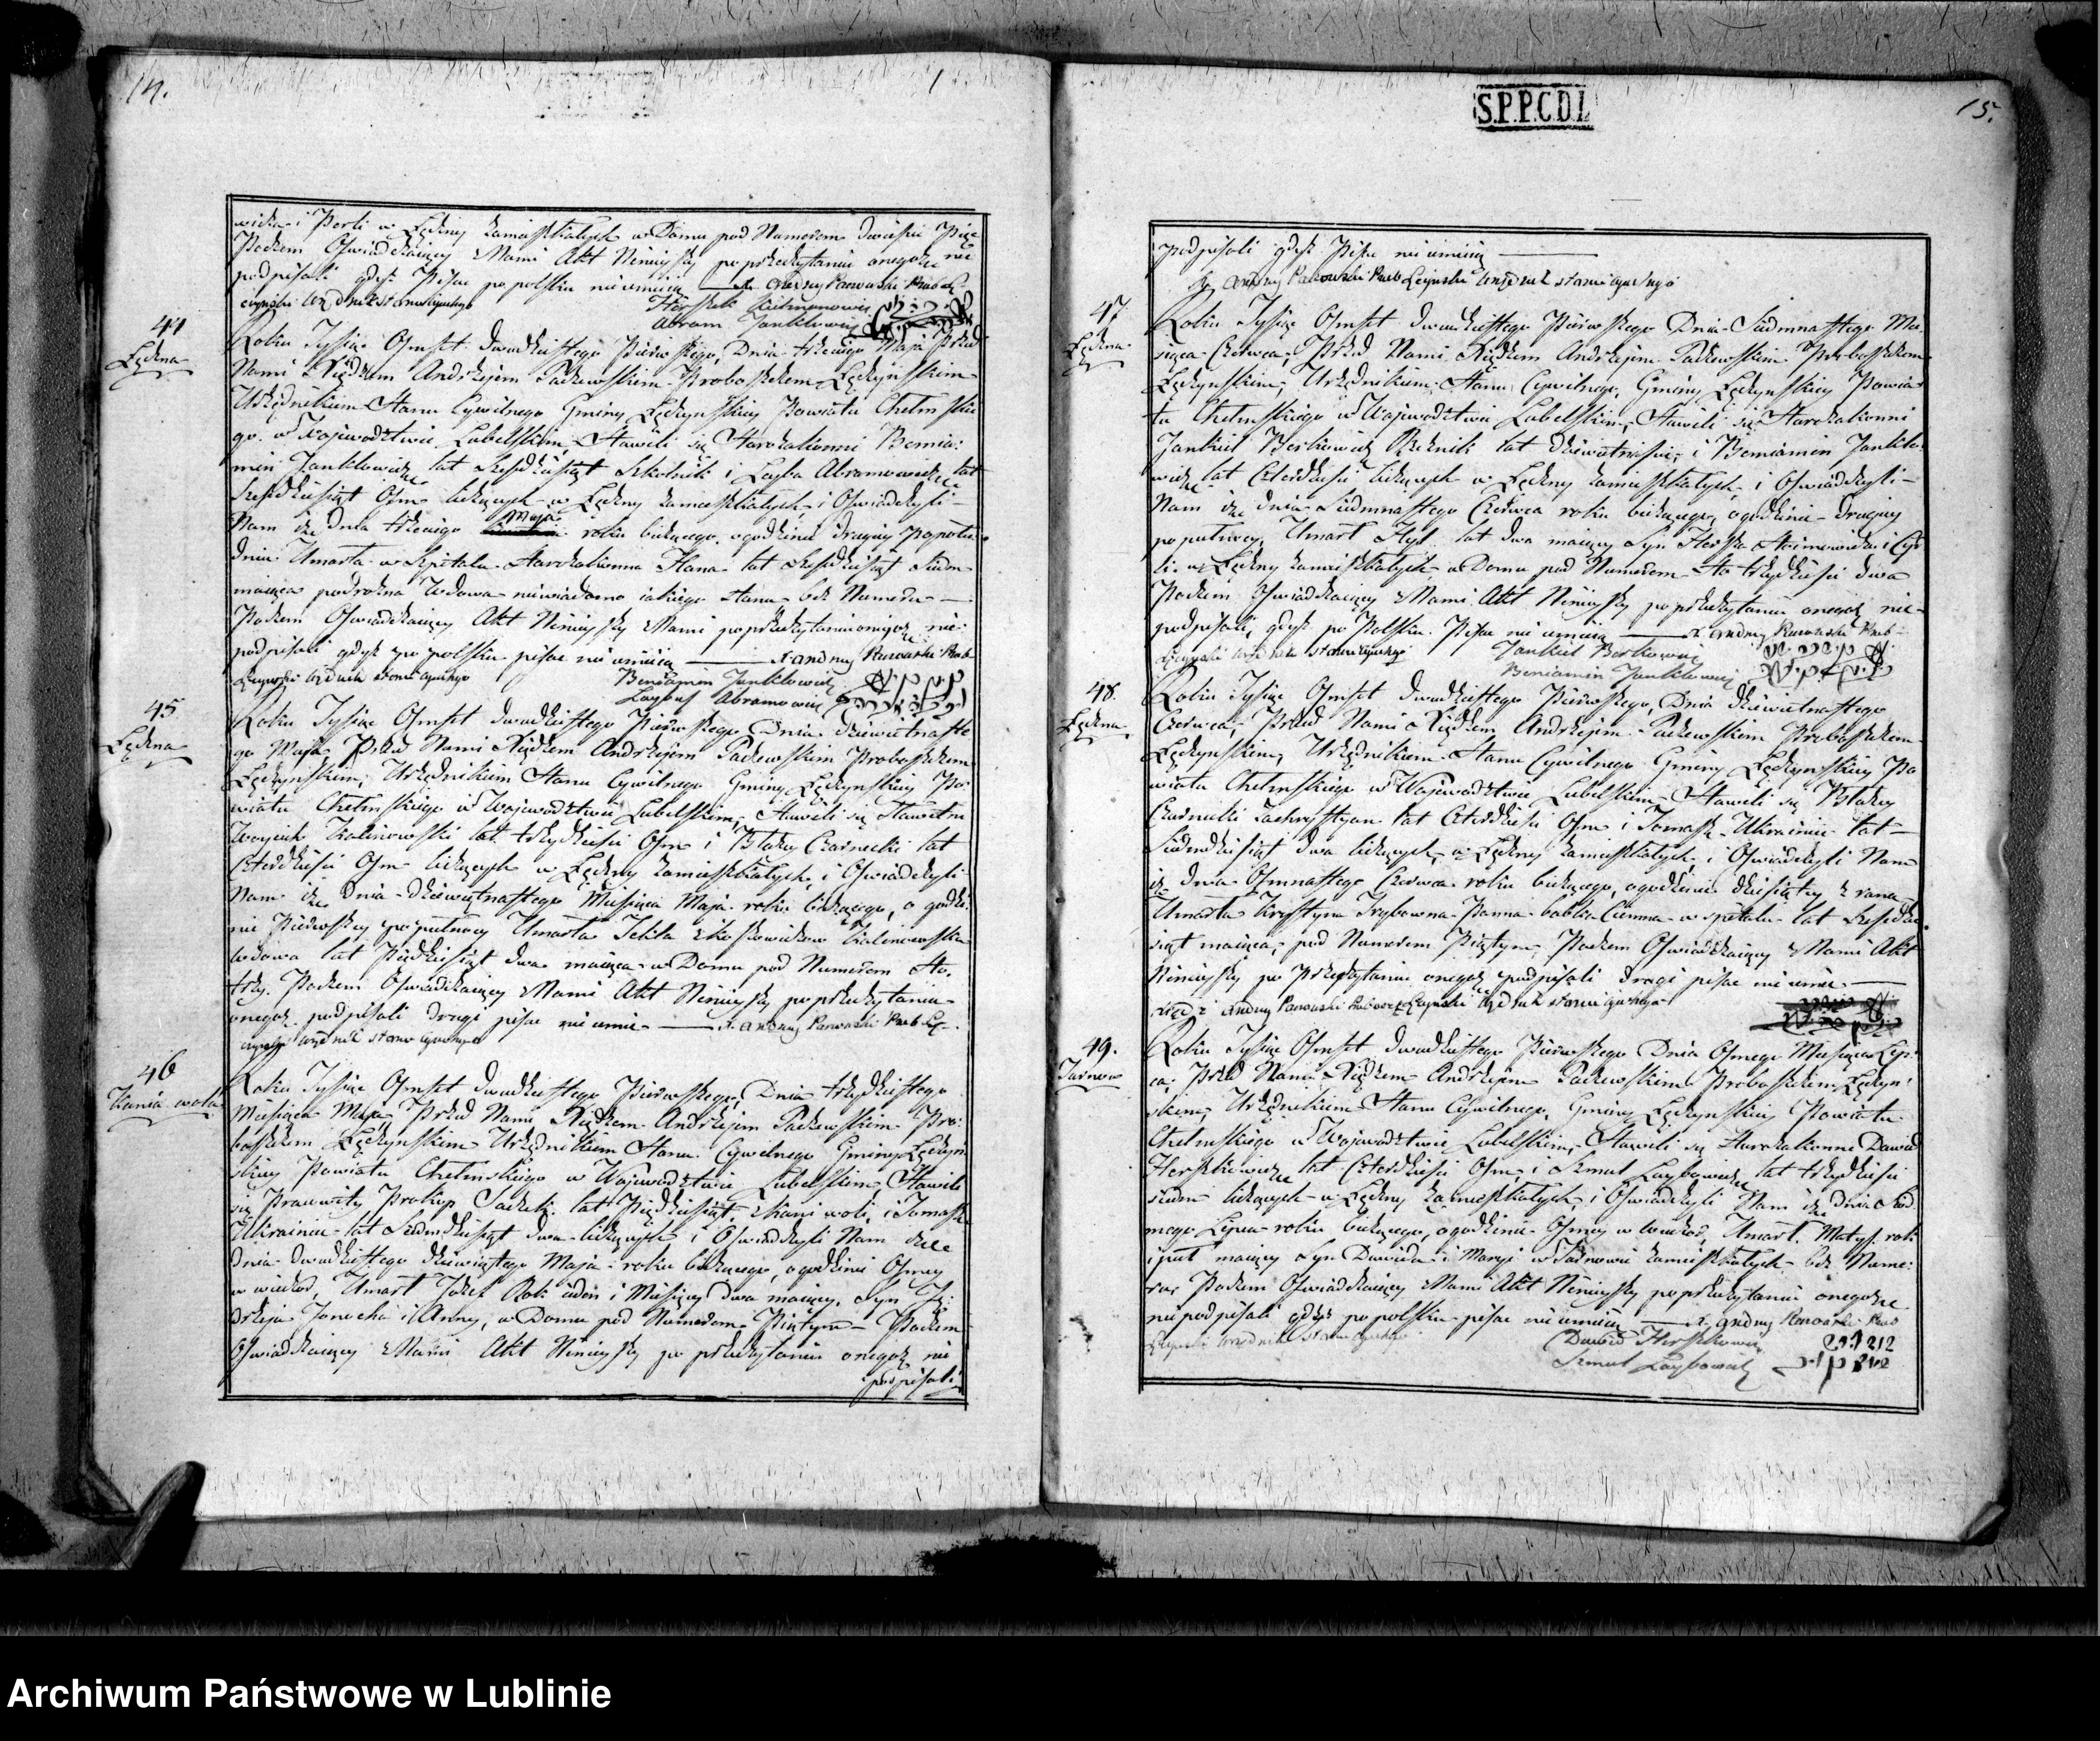 14.
1
wicza i Perli w Łęczny zamieszkałych w Domu pod Numerem dwieście Pięć
Poczem Oświadczaiący z Nami Akt Ninieyszy po przeczytaniu onegoż nie
podpisali gdyż Pisać po polsku nie umieią — X. Andrzey Paczewski Prob Łę-
czyński Urzędnik stanu cywilnego
Abram Jankielowicz
44
Łęczna
Roku Tysiąc Ośmset dwudziestego Pierwszego, Dnia trzeciego Maja Przed
Nami Xiędzem Andrzejem Paczewskim Proboszczem Łęczyńskim
Urzędnikiem Stanu Cywilnego Gminy Łęczyńskiey Powiatu Chełmskie
go w Wojewodztwie Lubelskim, Stawili się Starozakonni Benia:
min Jankielowicz lat Sześćdziesiąt Szkolnik i Layba Abramowicz lat
Sześćdziesiąt Ośm liczących w Łęczny zamieszkałych i Oświadczyli
Nam iż dnia trzeciego Maja roku bieżącego, o godzinie drugiey po połu
dniu Umarła w Szpitalu Starozakonna Hana lat Sześćdziesiąt siedm
maiąca podrożna Wdowa niewiadomo iakiego stanu bez Numeru —
Poczem Oświadczaiący Akt Ninieyszy z Nami po przeczytaniu onegoż nie:
podpisali gdyż po polsku pisać nie umieią — X. Andrzey Paczewski Prob
Łęczyński Urzędnik stanu cywilnego
Beniamin Jankielowicz
Laybus Abramowicz
45
Łęczna
Roku Tysiąc Ośmset dwudziestego Pierwszego Dnia dziewiętnaste
go Maja Przed Nami Xiędzem Andrzejem Paczewskim Proboszczem
Łęczyńskim, Urzędnikiem Stanu Cywilnego Gminy Łęczyńskiey Po:
wiatu Chełmskiego w Wojewodztwie Lubelskim, Stawili się Sławetni
Woyciech Kalinowski lat trzydzieści Ośm i Błażey Czarnecki lat
Czterdzieści Ośm liczących w Łęczny zamieszkałych, i Oświadczyli
Nam iż Dnia dziewiętnastego Miesiąca Maja roku bieżącego, o godzi
nie Pierwszey po pułnocy Umarła Kalinowska
wdowa lat Pięćdziesiąt dwa maiąca w Domu pod Numerem Sto
trzy. Poczem Oświadczaiący z Nami Akt Ninieyszy po przeczytaniu
onegoż podpisali drugi pisać nie umie — X. Andrzey Paczewski Prob Łę-
czyński Urzędnik stanu cywilnego
46
Kania wola
Roku Tysiąc Ośmset dwudziestego Pierwszego, Dnia trzydziestego
Miesiąca Maja Przed Nami Xiędzem Andrzejem Paczewskim Pro:
boszczem Łęczyńskim Urzędnikiem Stanu Cywilnego Gminy Łęczyń
skiey Powiatu Chełmskiego w Wojewodztwie Lubelskim Stawili
się Pracowity Prokop lat Pięćdziesiąt z Kani woli, i Tomasz
Ukrainiec lat Siedmdziesiąt dwa liczących i Oświadczyli Nam iże
Dnia dwudziestego dziewiątego Maja roku bieżącego, o godzinie Ósmey
w wieczor, Umarł Jozef Rok ieden i Miesięcy dwa maiący, Syn Ję:
drzeja Jonucha i Anny, w Domu pod Numerem Piątym — Poczem
Oświadczaiący z Nami Akt Ninieyszy po przeczytaniu onegoż nie
podpisali
S.P.P.C.D.L.
15.
podpisali gdyż Pisać nie umieią —
X. Andrzey Paczewski Prob Łęczyński Urzędnik stanu cywilnego
47
Łęczna
Roku Tysiąc Ośmset dwudziestego Pierwszego Dnia Siedmnastego Mie:
siąca Czerwca, Przed Nami Xiędzem Andrzejem Paczewskim Proboszczem
Łęczyńskim, Urzędnikiem Stanu Cywilnego, Gminy Łęczyńskiey Powia
tu Chełmskiego w Wojewodztwie Lubelskim, Stawili się Starozakonni
Jankiel Berkowicz Rzeznik lat dziewiętnaście, i Beniamin Jankielo
wicz lat Czterdzieści liczących w Łęczny zamieszkałych i Oświadczyli
Nam iż dnia Siedmnastego Czerwca roku bieżącego, o godzinie drugiey
po pułnocy, Umarł lat dwa maiący Syn Herszka i
w Łęczny zamieszkałych w Domu pod Numerem Sto trzydzieści dwa
Poczem Oświadczaiący z Nami Akt Ninieyszy po przeczytaniu onegoż nie
podpisali, gdyż po Polsku Pisać nie umieią — X. Andrzey Paczewski Prob
Łęczyński Urzędnik stanu cywilnego
Jankiel Berkowicz
Beniamin Jankielowicz
48.
Łęczna
Roku Tysiąc Ośmset dwudziestego Pierwszego, Dnia dziewiętnastego
Czerwca, Przed Nami Xiędzem Andrzejem Paczewskim Proboszczem
Łęczyńskim, Urzędnikiem Stanu Cywilnego Gminy Łęczyńskiey Po
wiatu Chełmskiego w Wojewodztwie Lubelskim Stawili się Błażey
Czarnecki Zachrystyan lat Czterdzieści Ośm i Tomasz Ukrainiec lat
Siedmdziesiąt dwa liczących w Łęczny zamieszkałych, i Oświadczyli Nam
iż dnia Ośmnastego Czerwca roku bieżącego, o godzinie dziesiątey z rana
Umarła Krystyna Panna babka Ciemna w szpitalu lat Sześćdzie
siąt maiąca, pod Numerem Piątym, Poczem Oświadczaiący z Nami Akt
Ninieyszy po Przeczytaniu onegoż podpisali drugi pisać nie umie —
Xiądz Andrzey Paczewski Proboszcz Łęczyński Urzędnik stanu cywilnego
49.
Jarnow
Roku Tysiąc Ośmset dwudziestego Pierwszego Dnia Osmego Miesiąca Lip:
ca, Przed Nami Xiędzem Andrzejem Paczewskim Proboszczem Łęczyń:
skim, Urzędnikiem Stanu Cywilnego, Gminy Łęczyńskiey Powiatu
Chełmskiego w Wojewodztwie Lubelskim, Stawili się Starozakonni Dawid
Herszkowicz lat Czterdzieści Ośm i Szmul Laybowicz lat trzydzieści
siedm liczących w Łęczny zamieszkałych, i Oświadczyli Nam iż dnia Siód
mego Lipca roku bieżącego, o godzinie Ósmey w wieczor, Umarł rok
i puł maiący Syn Dawida i Maryi w zamieszkałych bez Nume:
ru, Poczem Oświadczaiący z Nami Akt Ninieyszy po przeczytaniu onegoż
nie podpisali gdyż po polsku pisać nie umieią — X. Andrzey Paczewski Prob
Łęczyński Urzędnik stanu cywilnego
Dawid Herszkowicz
Szmul Laybowicz
Archiwum Państwowe w Lublinie